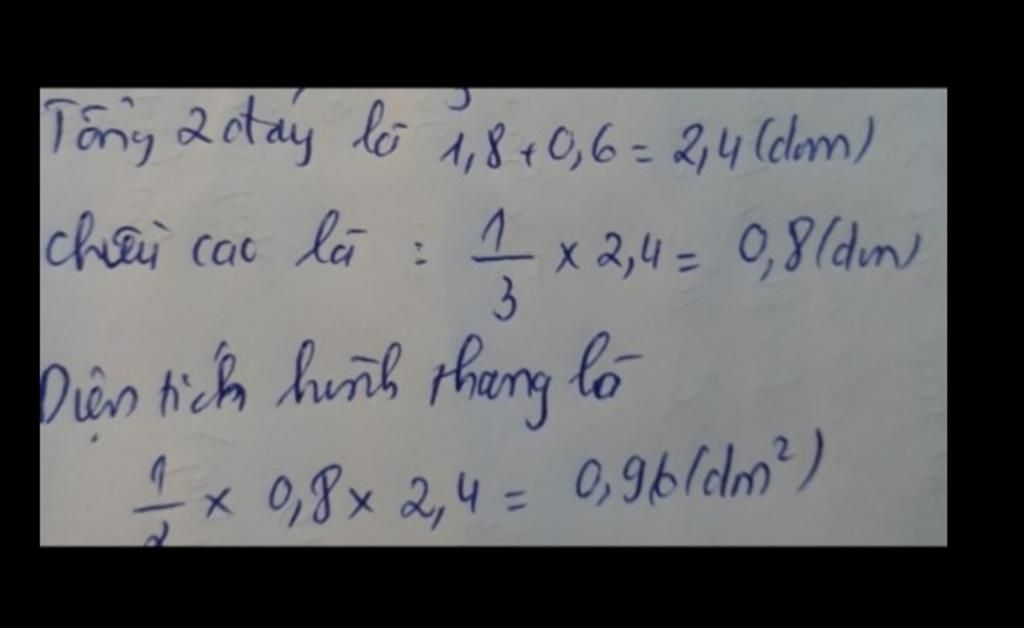 Tổng 2 đáy là 1,8 + 0,6 = 2,4 (dm)
chiều cao là : 1/3 x 2,4 = 0,8 (dm)
Diện tích hình thang là
1/2 x 0,8 x 2,4 = 0,96 (dm²)